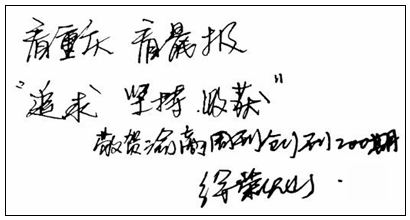 看重庆 看晨报
"追求 坚持 收获"
敬贺渝商周刊创刊200期